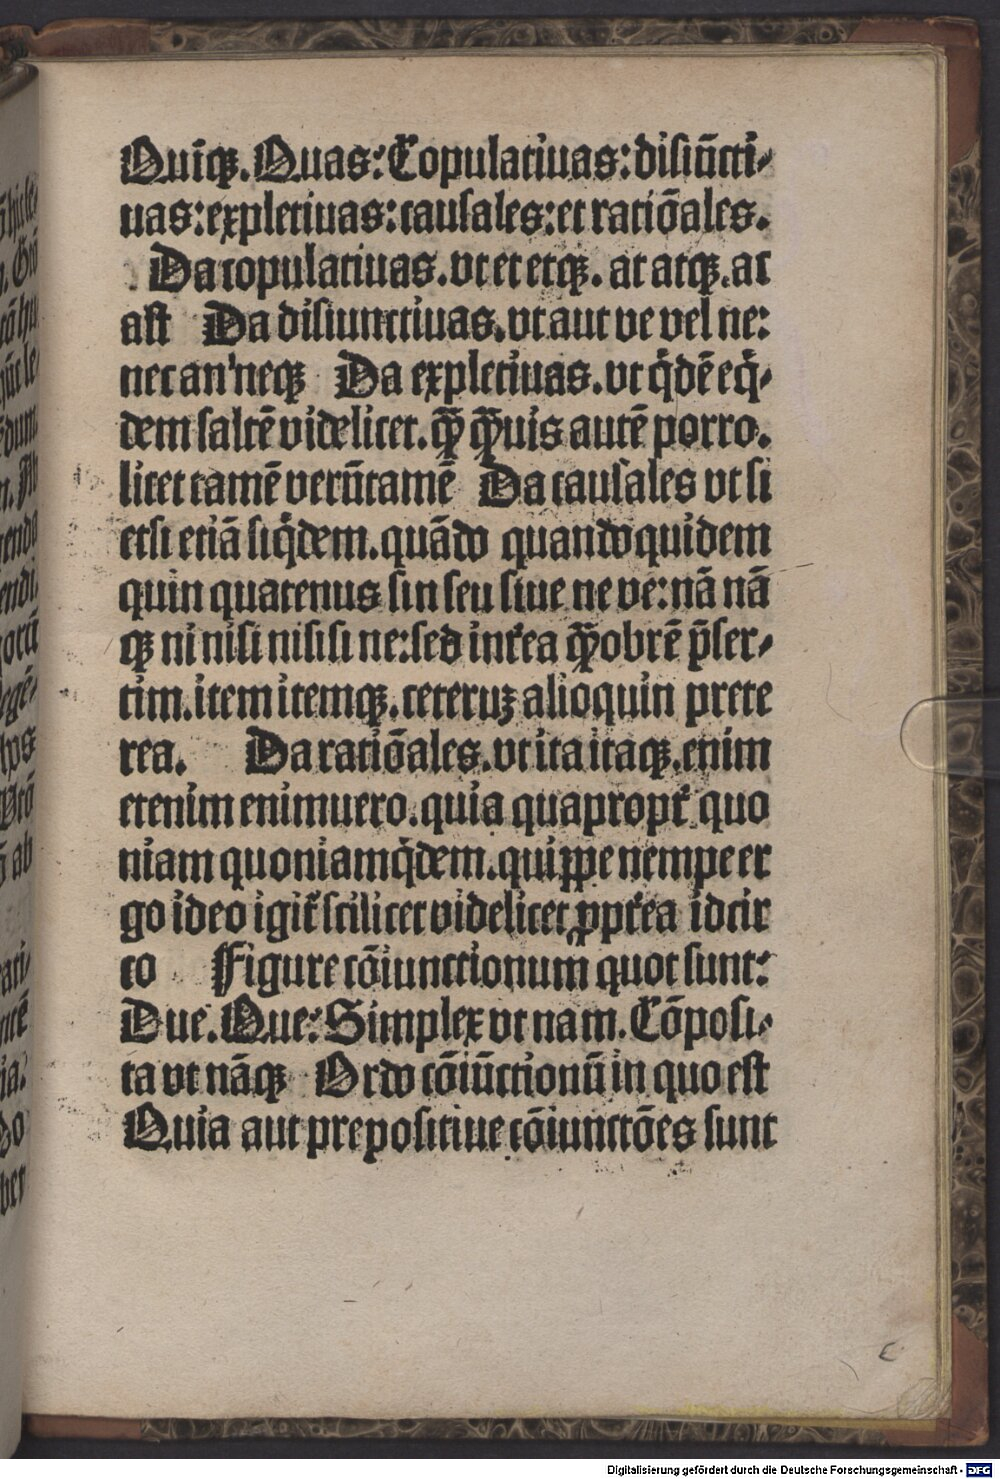 Quīqꝫ. Quas: Copulatiuas: disiūcti⸗
uas: expletiuas: causales: et ratiōales.
Da copulatiuas. vt et etqꝫ. at atqꝫ. ac
ast Da disiunctiuas. vt aut ve vel ne:
nec an neqꝫ Da expletiuas. vt q̇dē eq̇⸗
dem saltē videlicet. qꝫ̄ qꝫ̄uis autē porro.
licet tamē verūtamē Da causales vt si
etsi etiā siq̇dem. quādo quandoquidem
quin quatenus sin seu siue ne ve: nā nā
qꝫ ni nisi nisisi ne: sed int̉ea qꝫ̄obrē p̄ser⸗
tim. item itemqꝫ. ceteruꝫ alioquin prete
rea. Da ratiōales. vt ita itaqꝫ. enim
etenim enimuero. quia quapropt̉ quo
niam quoniamq̇dem. quippe nempe er
go ideo igit̉ scilicet videlicet ꝓpt̉ea idcir
co Figure cōiunctionum quot sunt:
Due. Que: Simplex vt nam. Cōposi⸗
ta vt nāqꝫ Ordo cōiūctionū in quo est
Quia aut prepositiue cōiunctōes sunt
Digitalisierung gefördert durch die Deutsche Forschungsgemeinschaft - DFG